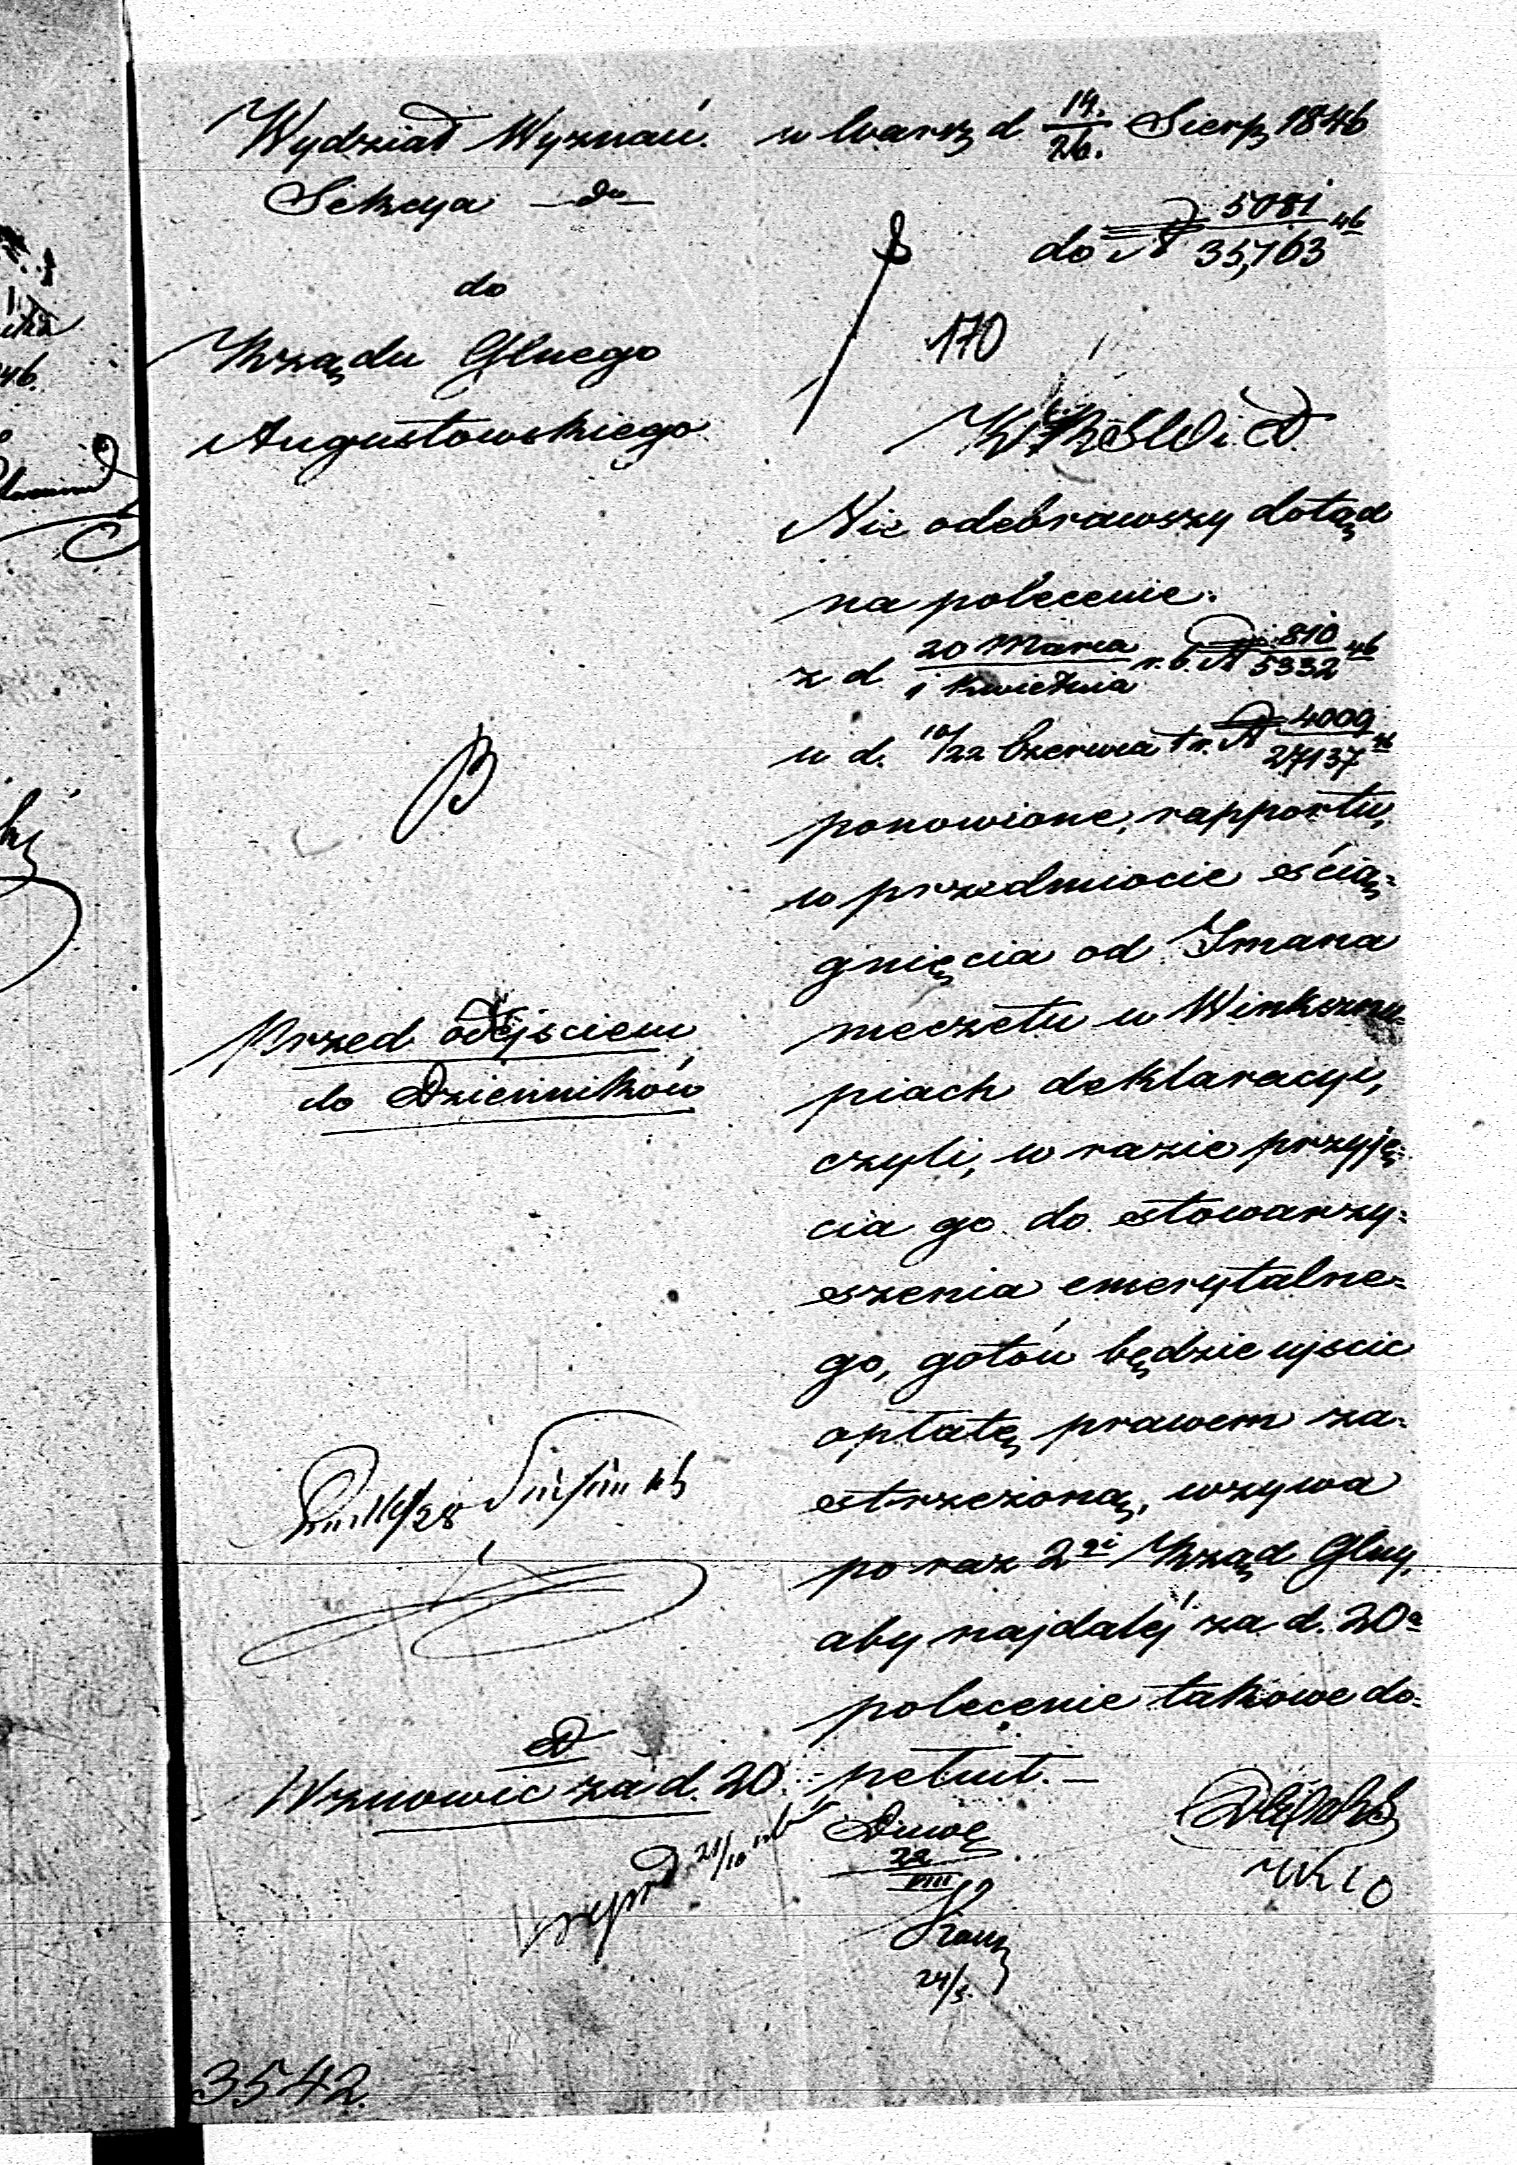 Wydział Wyznań.
Sekcya — do —
do
Rządu Głnego
Augustowskiego
w Warsz d 14./26. Sierp 1846
do N 5081/35,763 46
170
K.R.S.W. i D.
Nie odebrawszy dotąd
na polecenie
z d 20 Marca / 1 Kwietnia r. b. N 810/5332 46
w d. 10/22 Czerwca t. r. N 4009/27137 46
ponowione, rapportu,
w przedmiocie ścią=
gnięcia od Imana
meczetu w Winksznu
piach deklaracyi,
czyli, w razie przyję=
cia go do stowarzy=
szenia emerytalne=
go, gotów będzie ujścic
opłatę prawem za=
strzeżoną, wzywa
po raz 2gi Rząd Glny,
aby najdaléj za d. 20a
polecenie takowe do=
pełnił. —
Przed odejściem
do Dzienników
Wznowic za d. 20
22/VIII
24/8
21/10
3542.